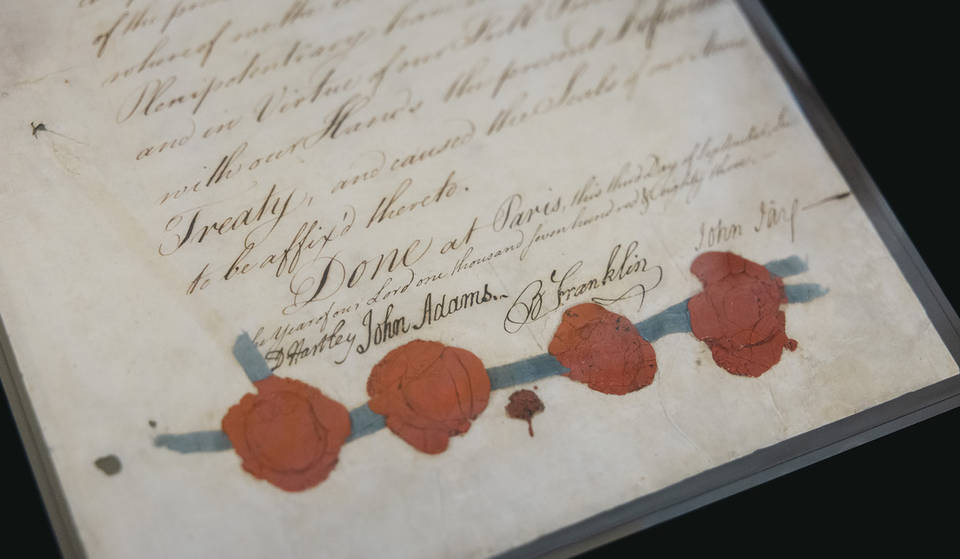 of the pre
whereof we the u
Plenipotentiary have
and in Virtue of our Full
with our Hands the present Definit
Treaty, and caused the Seals of our Arms
to be affix'd thereto.
Done at Paris, this third Day of September, In
Year of our Lord one thousand seven hundred & eighty three.
D Hartley John Adams. B Franklin John Jay